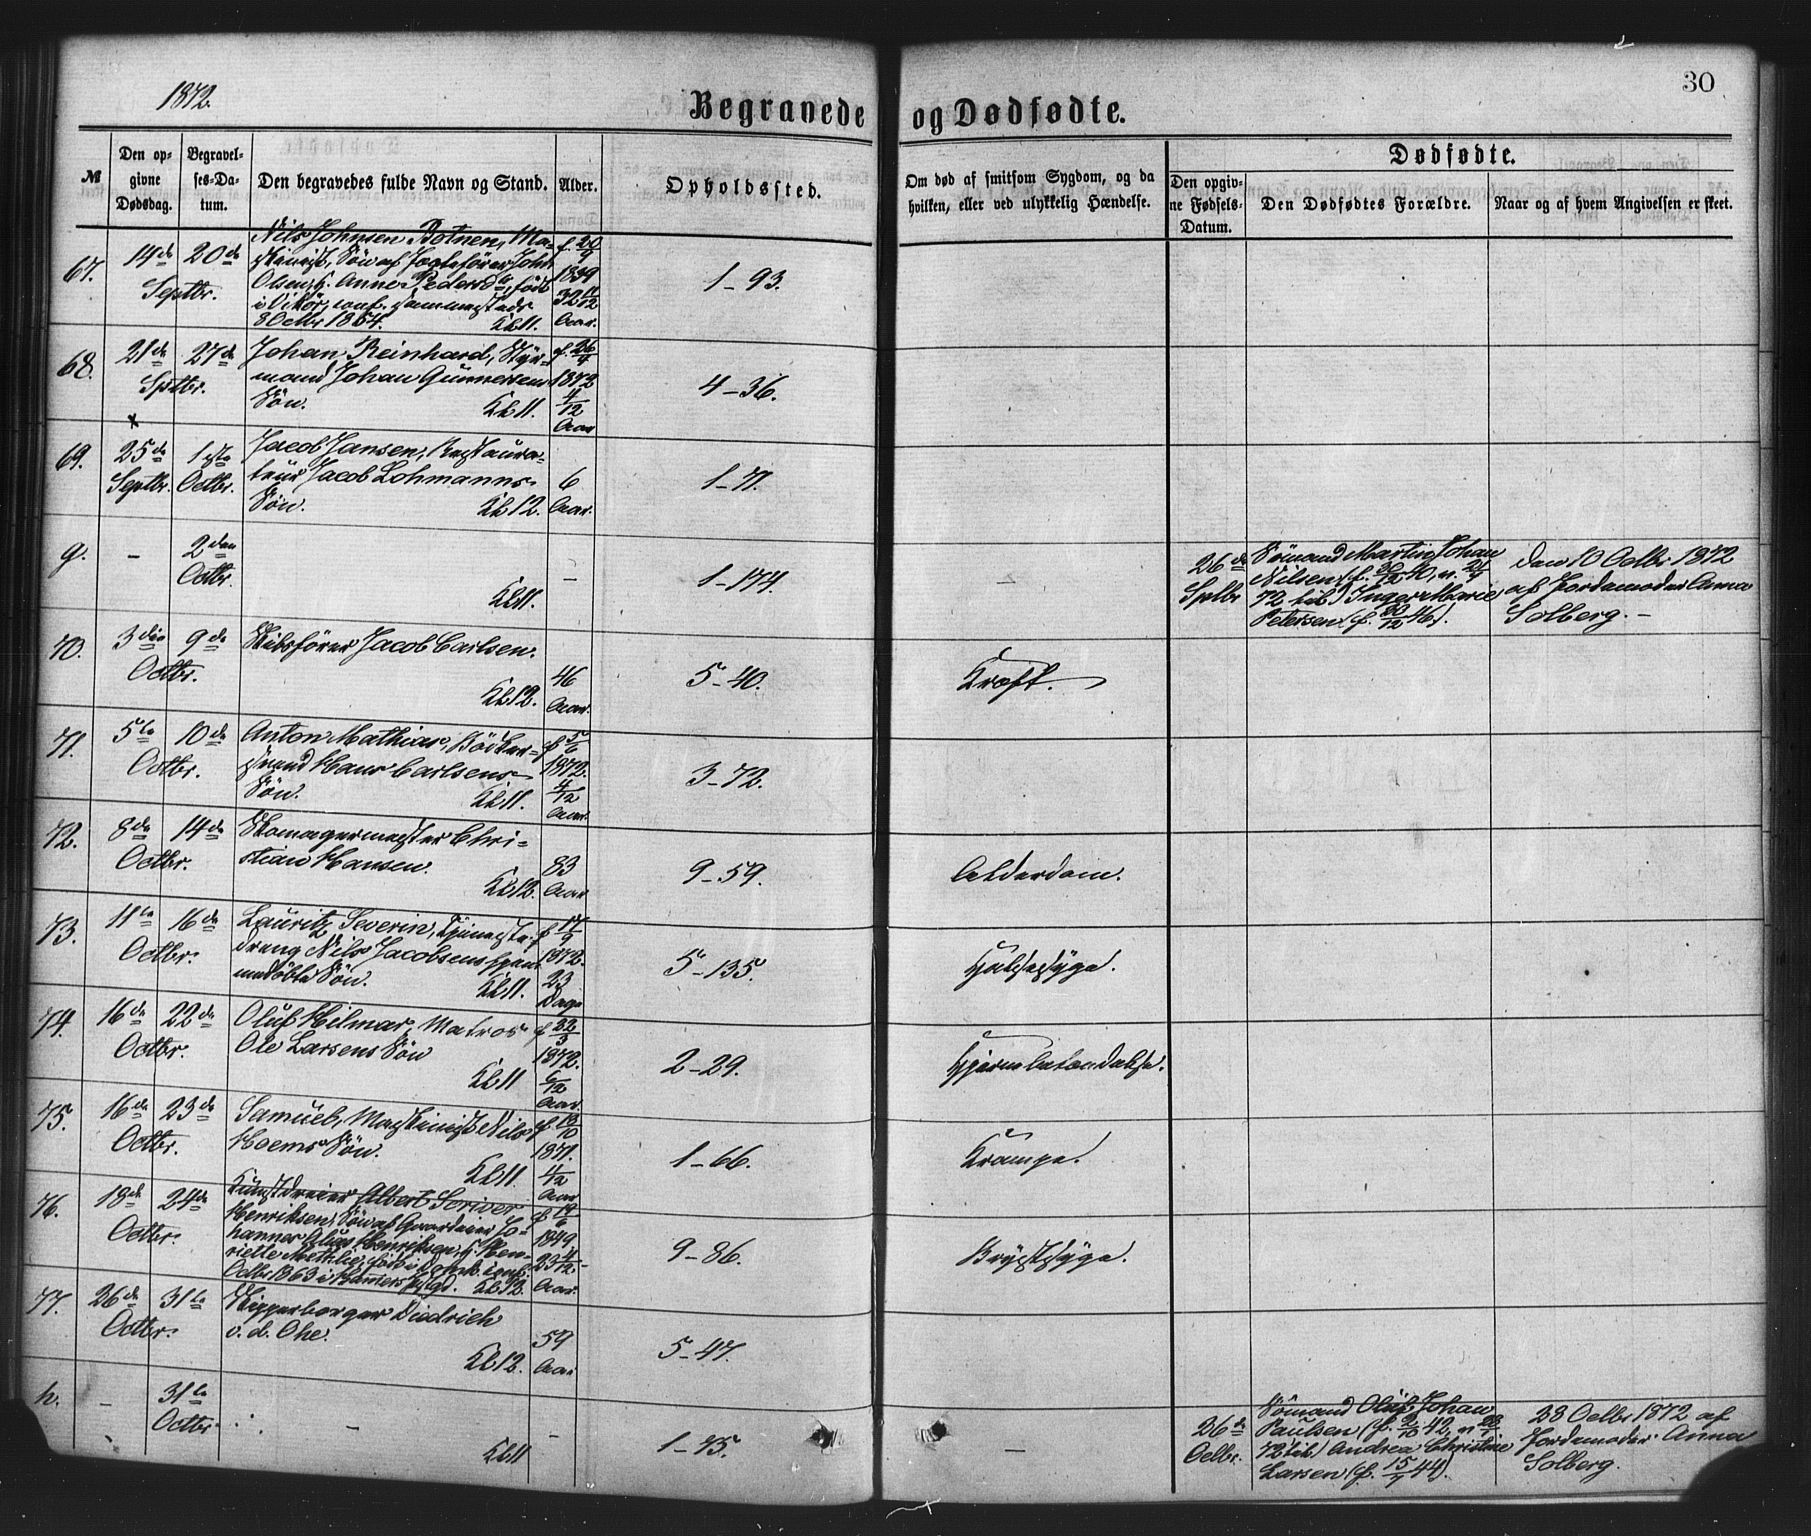 1872.
Begravede og Dødfødte.
30
№
Den opgivne Dødsdag.
Begravelses-Datum.
Den begravedes fulde Navn og Stand.
Alder.
Opholdssted.
Om død af smitsom Sygdom, og da hvilken, eller ved ulykkelig Hændelse.
Dødfødte.
Den opgivne Fødsels-Datum.
Den Dødfødtes Forældre.
Naar og af hvem Angivelsen er skeet.
67. 14de Septbr. 20de
Nils Johnsen Botnen, Ma-
skinist, Søn af John
Olsen, Anne Pedersd., født
i Vikør, conf. sammesteds
8 Octbr 1854. Kl. 11.
1839 32 11/12 Aar.
1–93.
68. 21de Septbr. 27de
Johan Reinhard, Styr-
mand Johan Gunnersens
Søn. Kl. 11.
f. 26/4 1872 4/12 Aar
4–36.
69. 25de Septbr. 1ste Octbr.
Jacob Jansen, Restaura-
teur Jacob Lohmanns
Søn. Kl. 12.
6 Aar.
1–71.
g. – 2den Octbr.
Kl. 11.
–
1–174.
–
26de Sptbr
Sømand Martin Johan
Nilsen (f. 40, n.
72 til) Inger Marie
Petersen (f. 46).
den 10 Octbr 1872
af Jordemoder Anna
Solberg. –
70. 3die Octbr. 9de
Skibsfører Jacob Carlsen.
Kl. 12.
46 Aar.
5–40.
Kræft.
71. 5te Octbr. 10de
Anton Mathias, Bødker-
svend Hans Carlsens
Søn. Kl. 11.
f 5/6 1872. 4/12 Aar.
3–72.
72. 8de Octbr. 14de
Skomagermester Chri-
stian Hansen.
Kl. 12.
83 Aar
9–59.
Alderdom.
73. 11te Octbr. 16de
Lauritz Severin, Tjeneste-
dreng Nils Jacobsens hjem-
medøbte Søn. Kl. 11.
f 17/9 1872. 23 Dage
5–135.
Halssyge.
74. 16de Octbr. 22de
Oluf Hilmar, Matros
Ole Larsens Søn
Kl. 11
1872. 6/12 Aar.
2–29.
Hjernebetændelse.
75. 16de Octbr. 23de
Samuel, Maskinist Nils
Hoems Søn.
Kl. 11.
1871. Aar
1–66.
Krampe.
76. 18de Octbr. 24de
Kunstdreier Albert Scriver
Henriksen, Søn af Jo-
hannes Henriksen, Hen-
riette født i conf.
Octbr 1863 i Kl. 12.
1849 23 4/12 Aar.
9–86.
Brystsyge.
77. 26de Octbr. 31te
Skipperborger Diedrich
v. d. Ohe.
Kl. 12.
59 Aar
5–47.
h. – 31te Octbr.
–
Kl. 11
–
1–75.
–
26de Octbr.
Sømand Oluf Johan
Paulsen (f. 2/10 42, n
72 til) Andrea Christine
Larsen (f. 15/7 44).
28 Octbr 1872 af
Jordemoder Anna
Solberg.